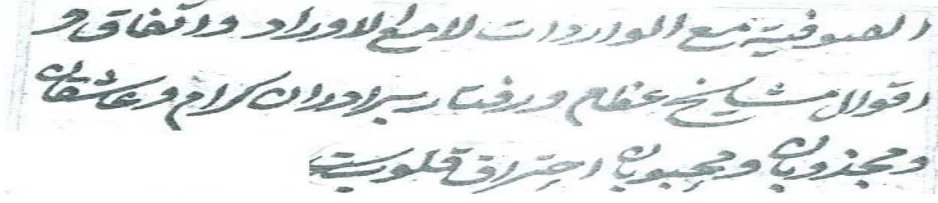 الصوفية مع الواردات لا مع الاوراد واتفاق و
اقوال مشايخ عظام ورفتار برادران كرام وعاشقان
ومجذوبان ومحبوبان احتراق قلوبست